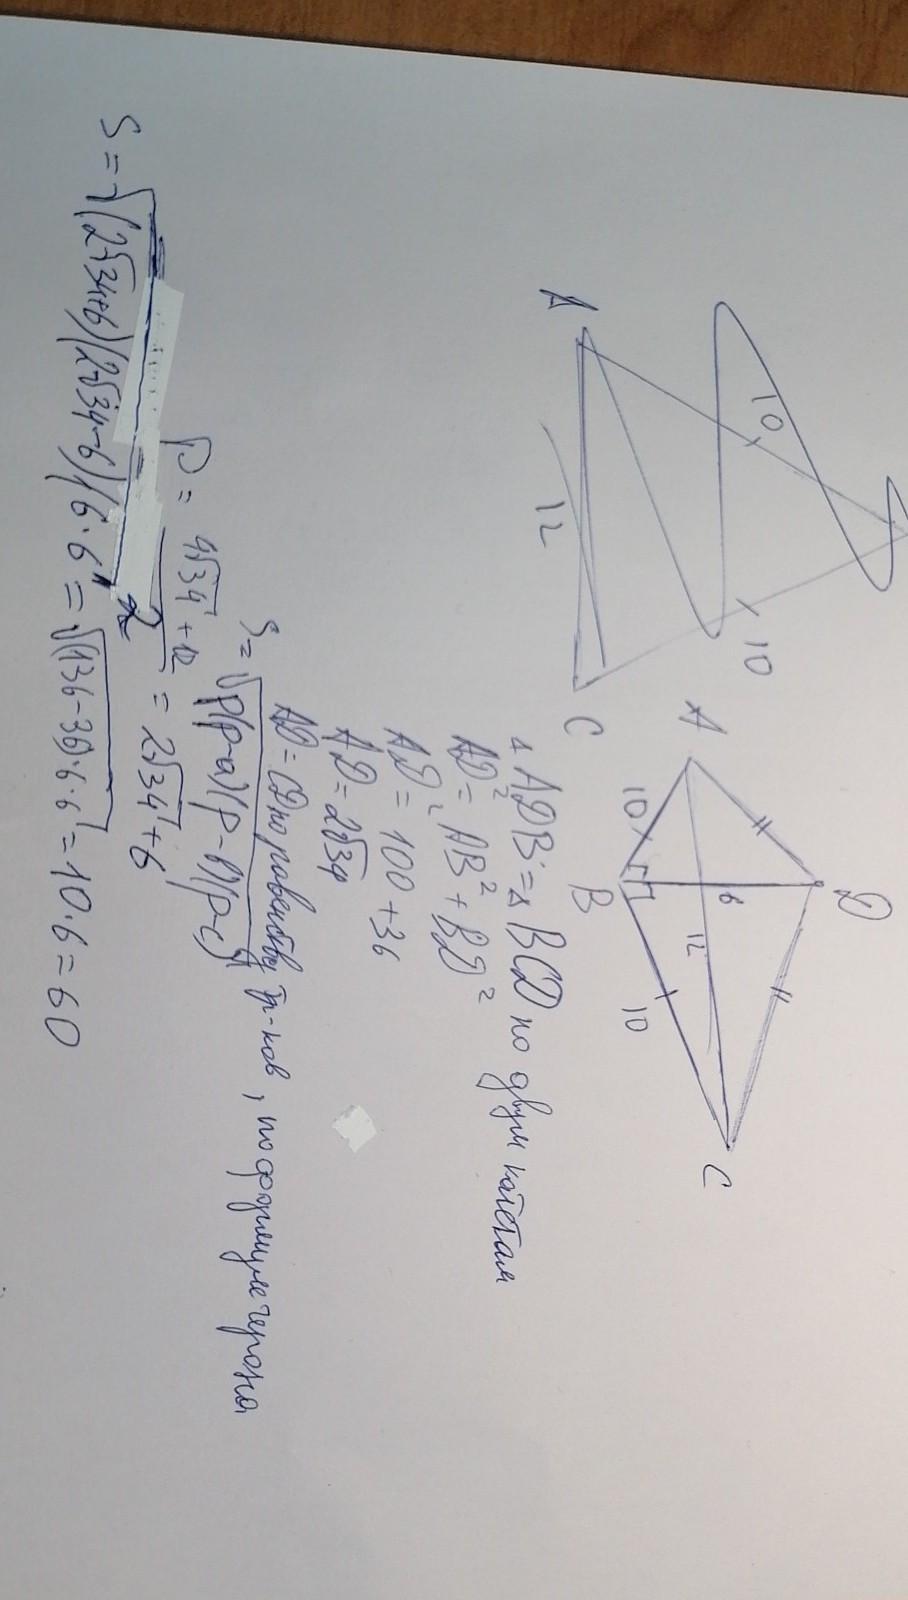 A
10
10
12
C
A
D
10
B
6
12
10
C
△ ADB = △ BCD по двум катетам
AD² = AB² + BD²
AD² = 100 + 36
AD = 2√34
AD = CD по равенству тр-ков, по формуле герона
S = √p(p-a)(p-b)(p-c)
P = 4√34 + 12 / 2 = 2√34 + 6
S = √(2√34+6)(2√34-6)·6·6 = √(136-36)·6·6 = 10·6 = 60